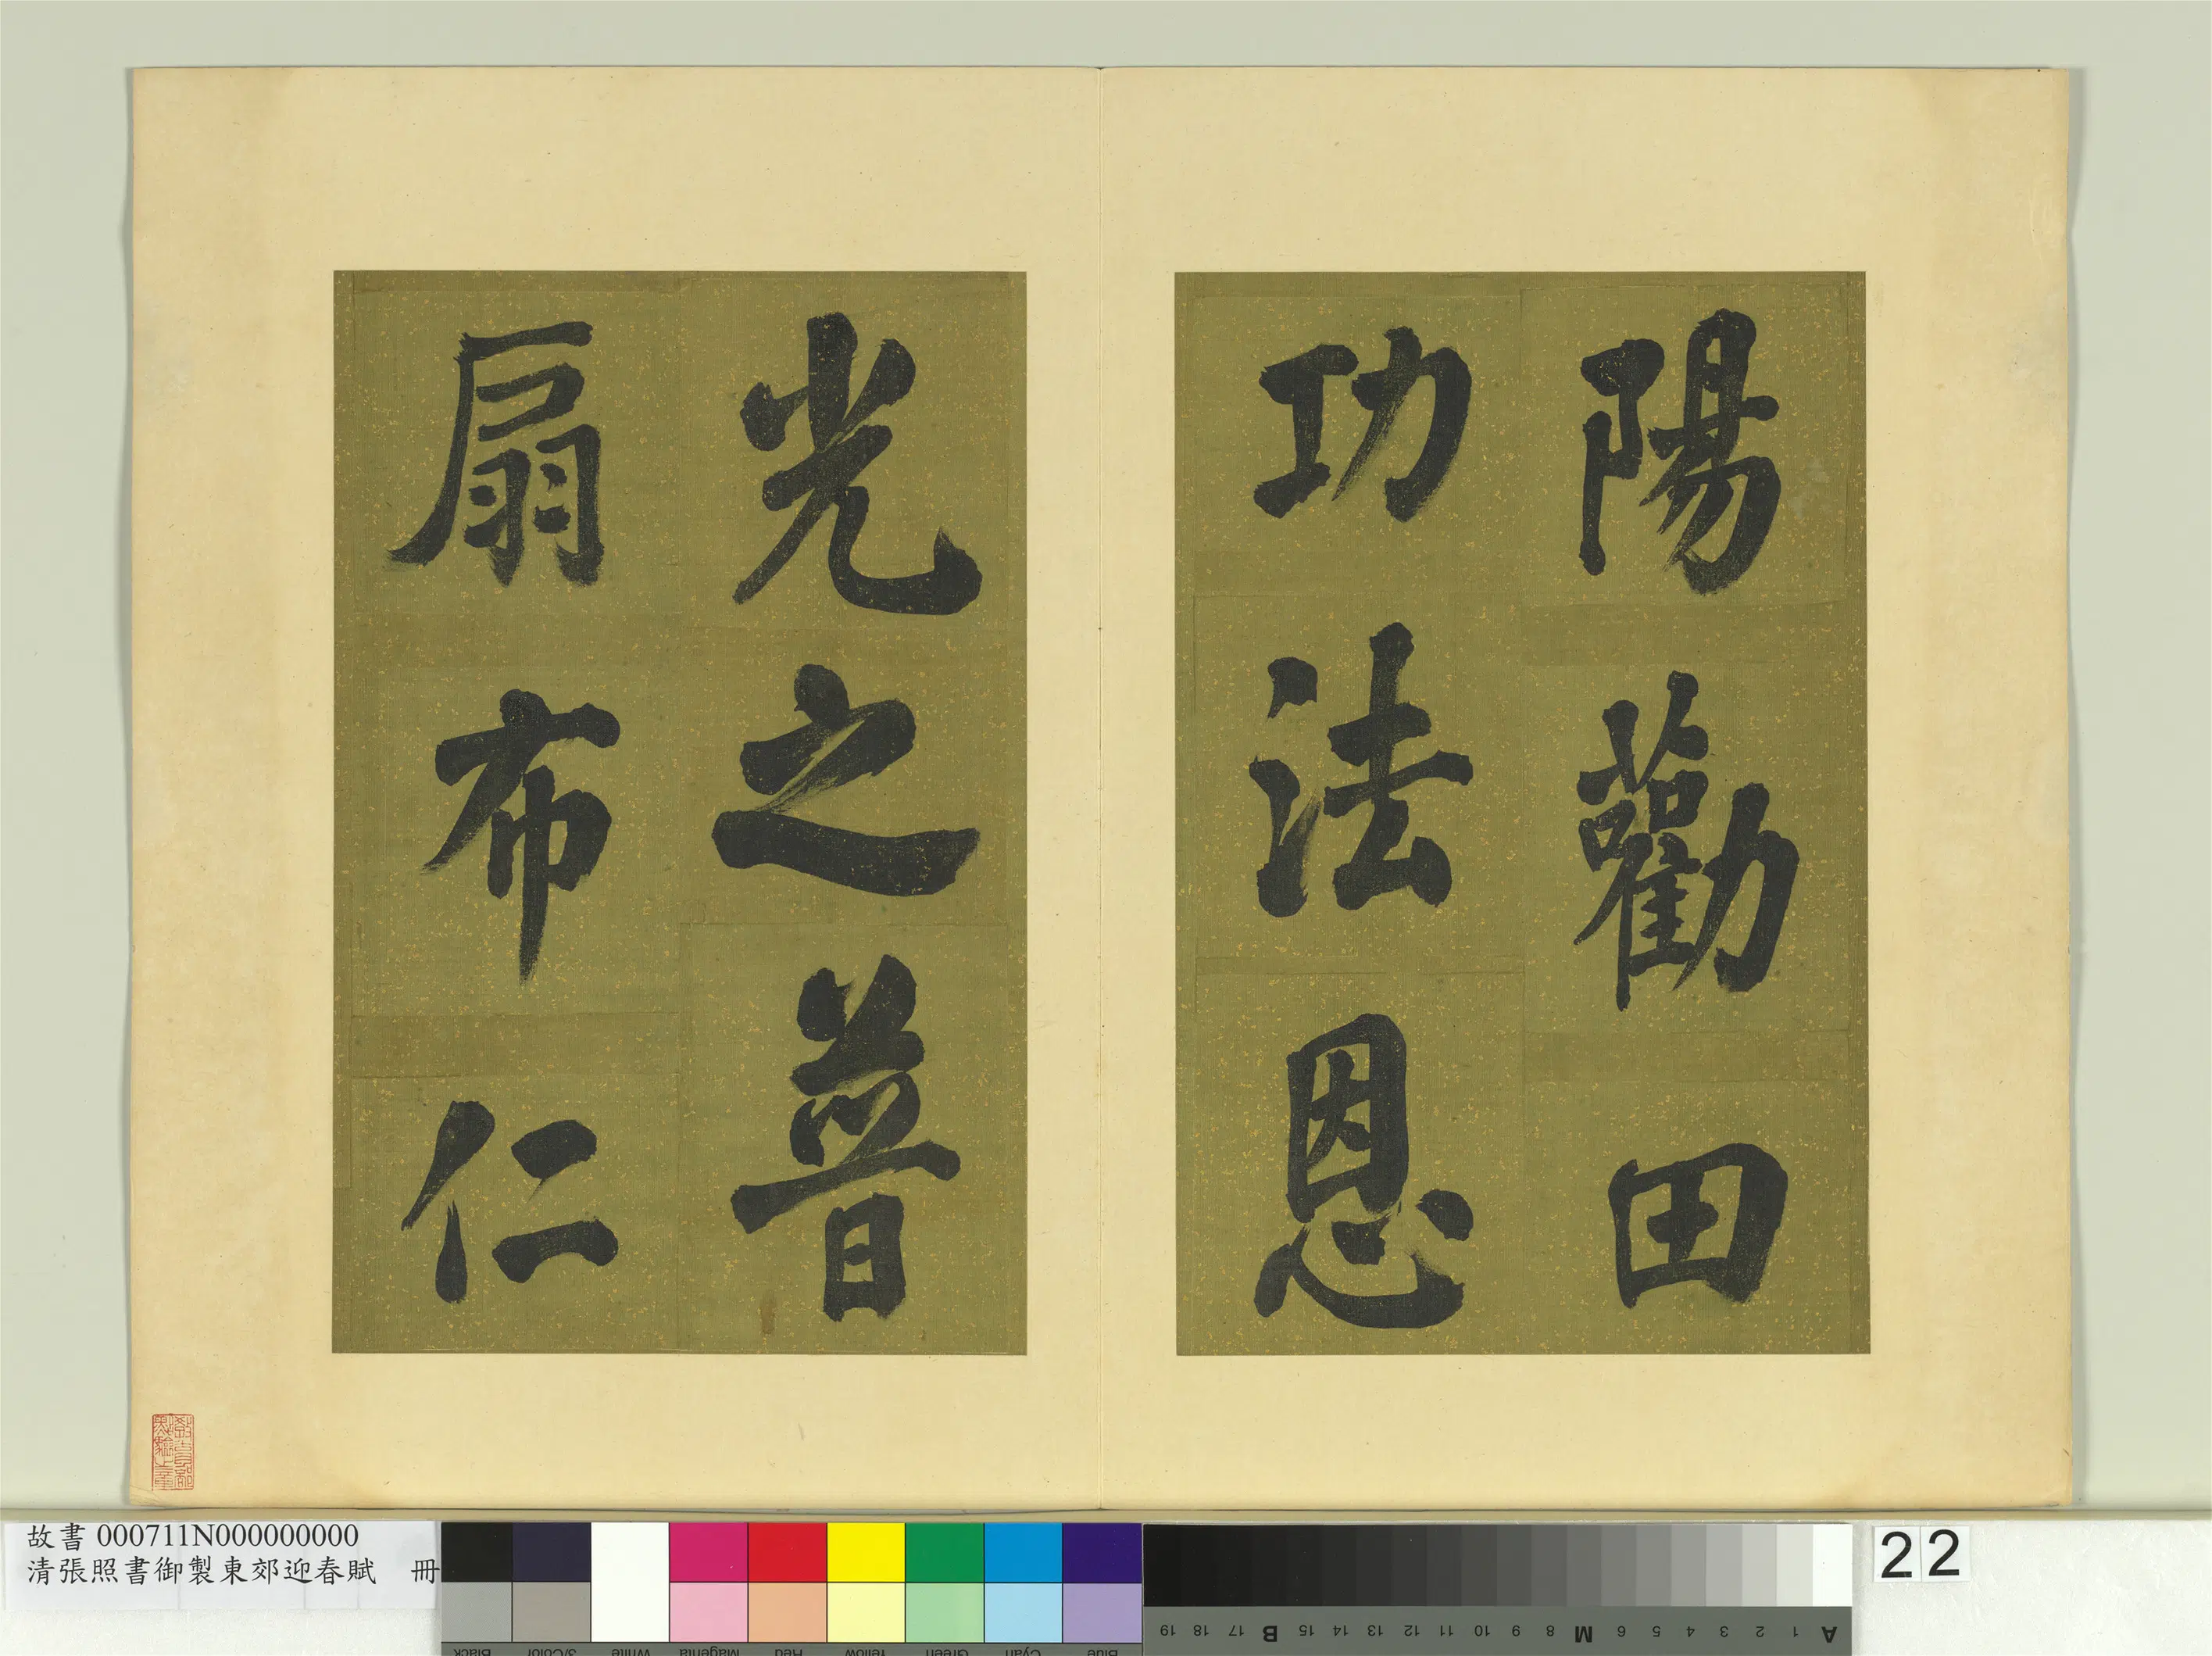 陽勸田
功法恩
光之普
扇布仁
故書 000711N000000000
清張照書御製東郊迎春賦 冊
22
Black 3/Color White Magenta Red Yellow Green Cyan Blue
A 1 2 3 4 5 6 M 8 9 10 11 12 13 14 15 B 17 18 19